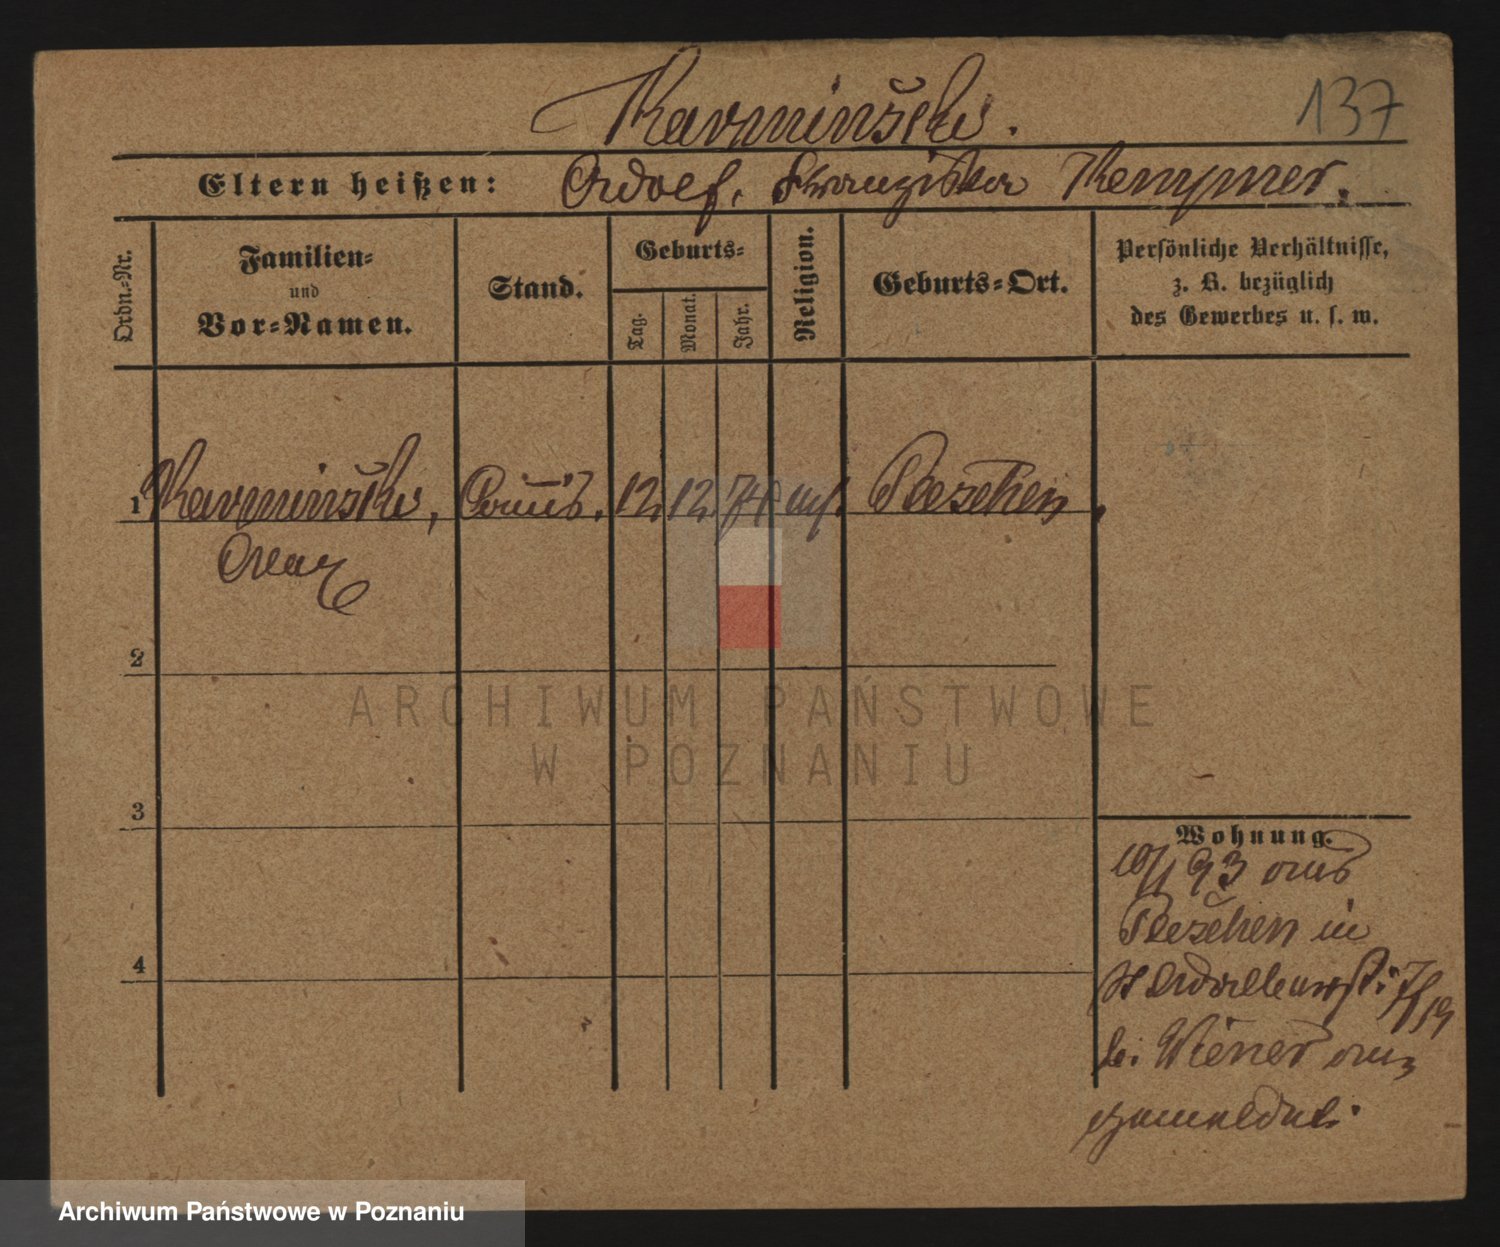 Karminski.
137
Eltern heißen: Adolf, Franziska Kempner.
Ordn.-Nr.
Familien-
und
Vor-Namen.
Stand.
Geburts-
Tag.
Monat.
Jahr.
Religion.
Geburts-Ort.
Persönliche Verhältnisse,
z. B. bezüglich
des Gewerbes u. s. w.
1 Karminski, Comis. 12. 12. 74 Pleschen.
Max
2
3
4
Wohnung.
10/1 93 aus
Pleschen in
bei Wiener an-
gemeldet.
ARCHIWUM PAŃSTWOWE
W POZNANIU
Archiwum Państwowe w Poznaniu